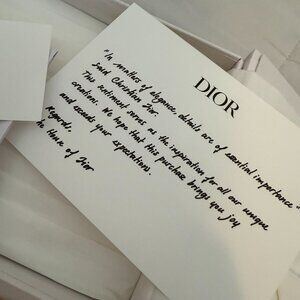 DIOR
"In matters of elegance, details are of essential importance"
said Christian Dior.
This sentiment serves as the inspiration for all our unique
creations. We hope that this purchase brings you joy
and exceeds your expectations.
Regards,
The House of Dior